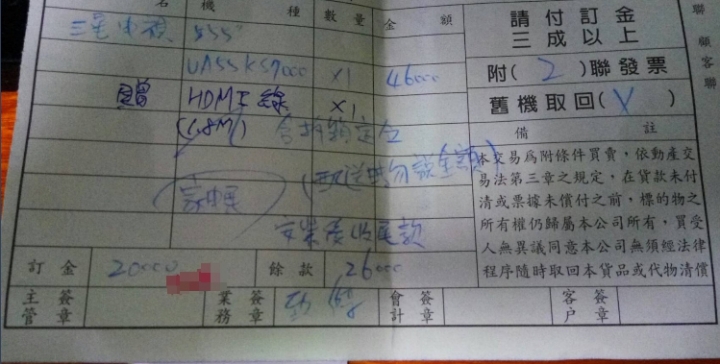 名 機 種 數 量 金 額
三星電視 55"
UA55KS7000 X1 46000
贈 HDMI線 X1
(1.8M)
尾款
訂金 20000 餘款 26000
主管 簽章 業務 簽章 會計 簽章 客戶 簽章
請付訂金
三成以上
附( 2 )聯發票
舊機取回( V )
備 註
本交易為附條件買賣,依動產交
易法第三章之規定,在貨款未付
清或票據未償付之前,標的物之
所有權仍歸屬本公司所有,買受
人無異議同意本公司無須經法律
程序隨時取回本貨品或代物清償
聯 顧客聯